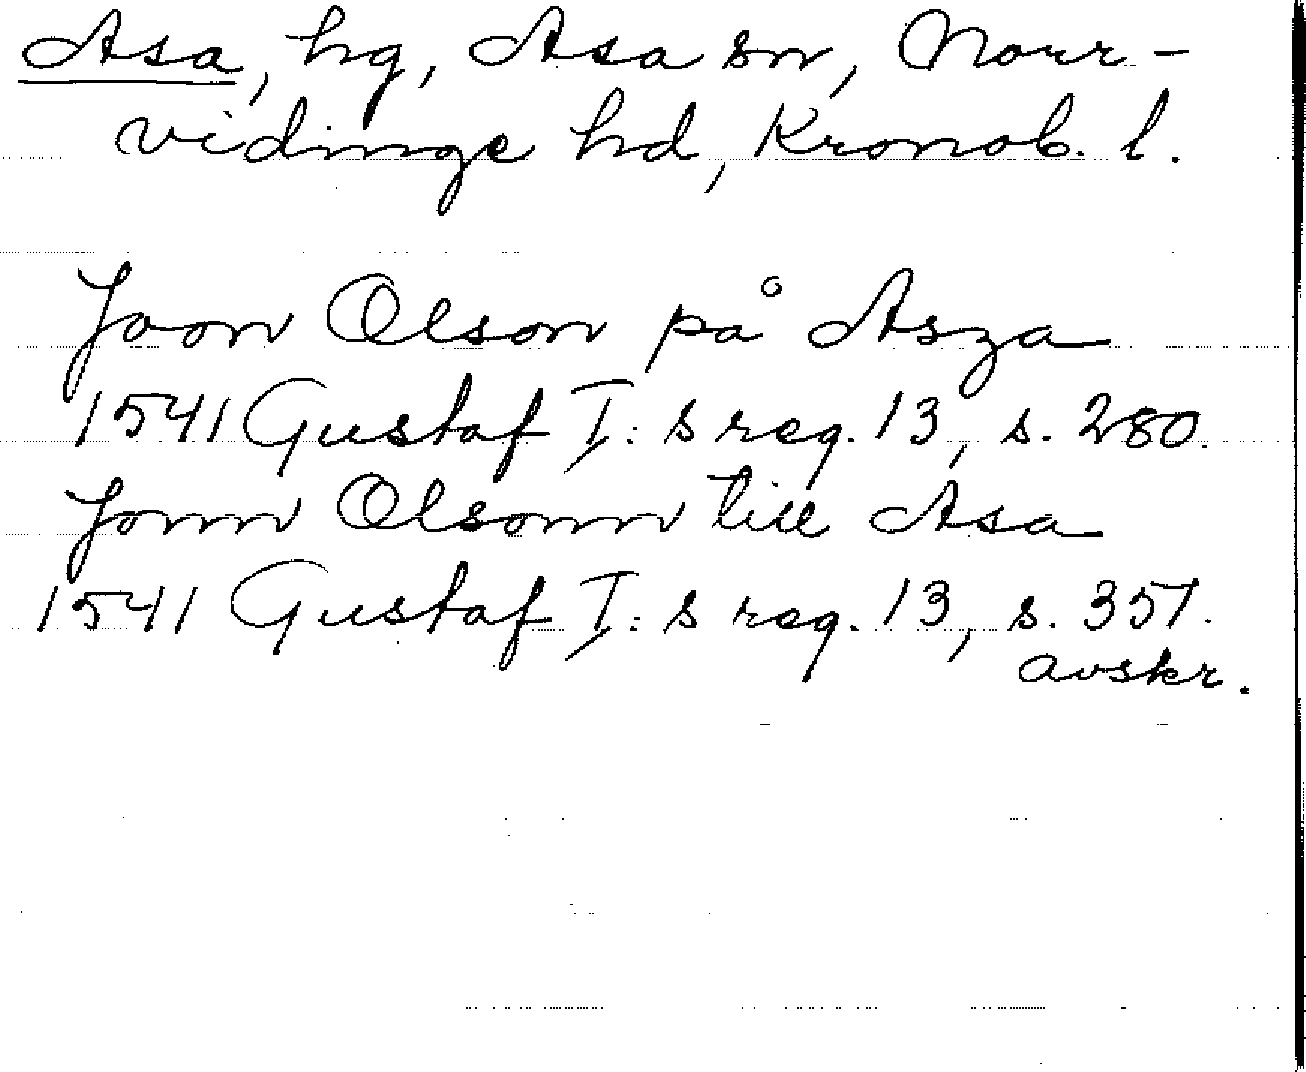 Asa, hg, Asa sn, Norr-
vidinge hd, Kronob. l.
Joon Olson på Asza
1541 Gustaf I:s reg. 13, s. 280.
Jonn Olsonn till Asa
1541 Gustaf I:s reg. 13, s. 357.
avskr.